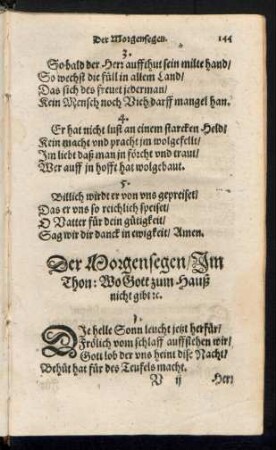 Der Morgensegen. 144
3.
So bald der Herr auffthut sein milte hand/
So wechst die füll in allem Land/
Das sich des frewet jederman/
Kein Mensch noch Vieh darff mangel han.
4.
Er hat nicht lust an einem starcken Held/
Kein macht und pracht jm wolgefellt/
Im liebt daß man jn förcht vnd traut/
Wer auff jn hofft hat wolgebaut.
5.
Billich wirdt er von vns gepreiset/
Das er vns so reichlich speiset/
O Vatter für dein gütigkeit/
Sag wir dir danck in ewigkeit/ Amen.
Der Morgensegen/ Im
Thon: Wo Gott zum Hauß
nicht gibt ꝛc.
1.
DIe helle Sonn leucht jetzt herfür/
Frölich vom schlaff auffstehen wir/
Gott lob der vns heint dise Nacht/
Behüt hat für des Teufels macht.
V ij Herr